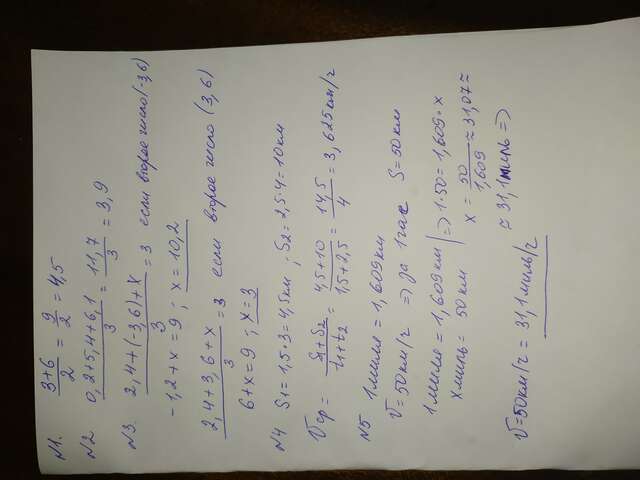 N1. 3+6/2 = 9/2 = 4,5
N2 0,2+5,4+6,1/3 = 11,7/3 = 3,9
N3. 2,4+(-3,6)+x/3 = 3 если второе число (-3,6)
-1,2+x = 9 ; x = 10,2
2,4+3,6+x/3 = 3 если второе число (3,6)
6+x = 9 ; x = 3
N4 S1 = 1,5·3 = 4,5км ; S2 = 2,5·4 = 10км
Vср = S1+S2/t1+t2 = 4,5+10/1,5+2,5 = 14,5/4 = 3,625км/г
N5 1миля = 1,609км
V = 50км/г => за 1час S = 50км
1миля = 1,609км
x миль = 50км => 1·50 = 1,609·x
x = 50/1,609 ≈ 31,07 ≈
≈ 31,1миль =>
V = 50км/г = 31,1миль/г